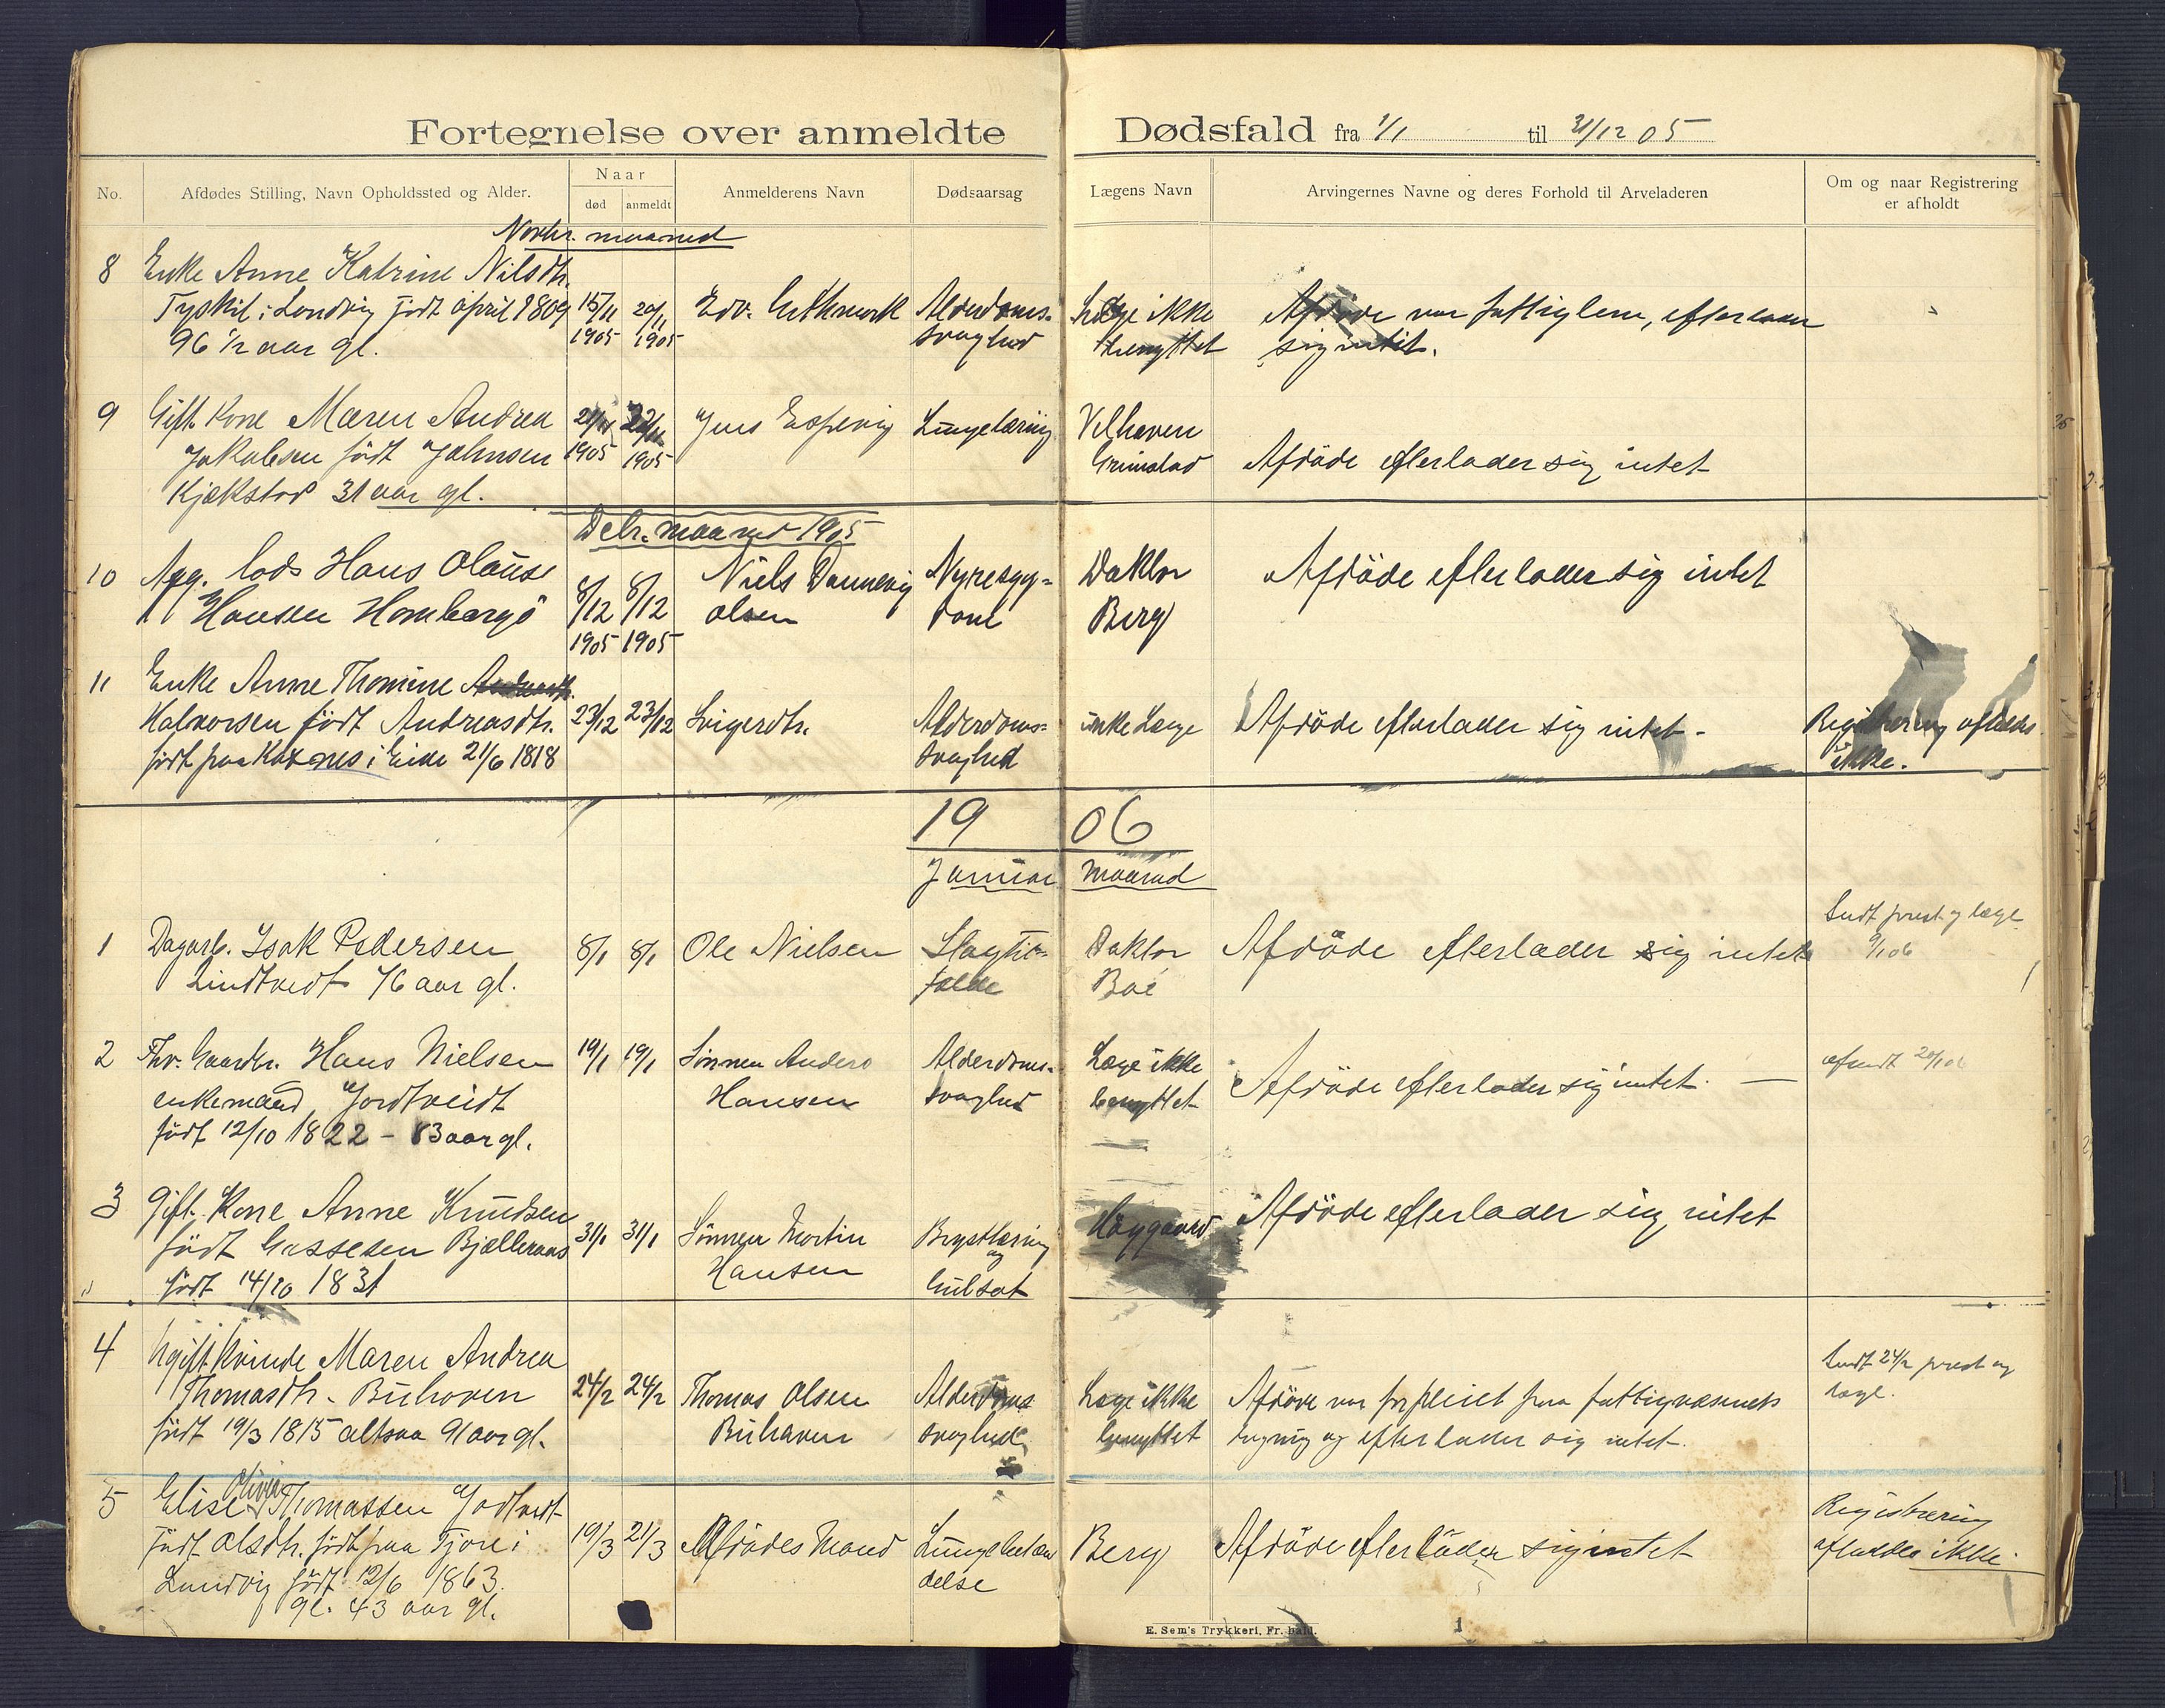 Fortegnelse over anmeldte Dødsfald fra 1/1 til 31/12 05
No. Afdødes Stilling, Navn Opholdssted og Alder. Naar død anmeldt Anmelderens Navn Dødsaarsag Lægens Navn Arvingernes Navne og deres Forhold til Arveladeren Om og naar Registrering er afholdt
Novbr. maaned
8 Enke Anne Katrine Nilsdtr.
født april 1809 15/11 20/11 Edv. Alderdoms- Læge ikke Afdøde var fattiglem, efterlader
96 1/2 aar gl. 1905 1905 svaghed benyttet sig intet.
9 Gift Kone Maren Andrea 21/11 22/11 Jens Espevig Lungetæring Velhaven
Jakobsen født Johnsen 1905 1905 Grimstad Afdøde efterlader sig intet
Kjækstad 31 aar gl.
Debr. maaned 1905
10 lods Hans Olause 8/12 8/12 Niels Dannevig Nyresyg- Doktor Afdøde efterlader sig intet
Hansen Homborgö 1905 1905 Olsen dom Berg
11 Enke Anne Thomine
Halvorsen født Andreasdtr. 23/12 23/12 Svigerdtr. Alderdoms- ikke Læge Afdøde efterlader sig intet - Registrering afholdes
født paa i Eide 21/6 1818 svaghed ikke.
1906
Januar maaned
1 Dagarb. Isak Pedersen 8/1 8/1 Ole Nielsen Slagtil- Doktor Afdøde efterlader sig intet Sendt prest og læge
Lindtvedt 76 aar gl. fælde Boe 9/1 06
2 Fhv. Gaardbr. Hans Nielsen 19/1 19/1 Sönnen Anders Alderdoms- Læge ikke Afdøde efterlader sig intet. — afsendt 20/1 06
enkemand, Jortveidt Hansen svaghed benyttet
født 12/10 1822 - 83 aar gl.
3 Gift Kone Anne Knudsen
født Gassesen Bjelleraas 31/1 31/1 Sönnen Martin Brysttæring Høygaard Afdøde efterlader sig intet
født 14/10 1831 Hansen og Gulsot
4 Ugift Kvinde Maren Andrea Sendt 24/2 prest og
Thomasdtr. Buhoven 24/2 24/2 Thomas Olsen Alderdoms Læge ikke Afdøde var forpleiet paa fattigvæsenets læge.
født 19/3 1815 altsaa 91 aar gl. Buhaven svaghed benyttet og efterlader sig intet.
5 Elise Olivia Thomassen Jortvedt Registrering
født Olsdtr. født paa Fjære i 19/3 21/3 Afdødes Mand Lungebetæn Berg Afdøde efterlader sig intet afholdes ikke.
Landvig født 12/6 1863. delse
gl. 43 aar gl.
E. Sem's Trykkeri, Fr. hald.
1